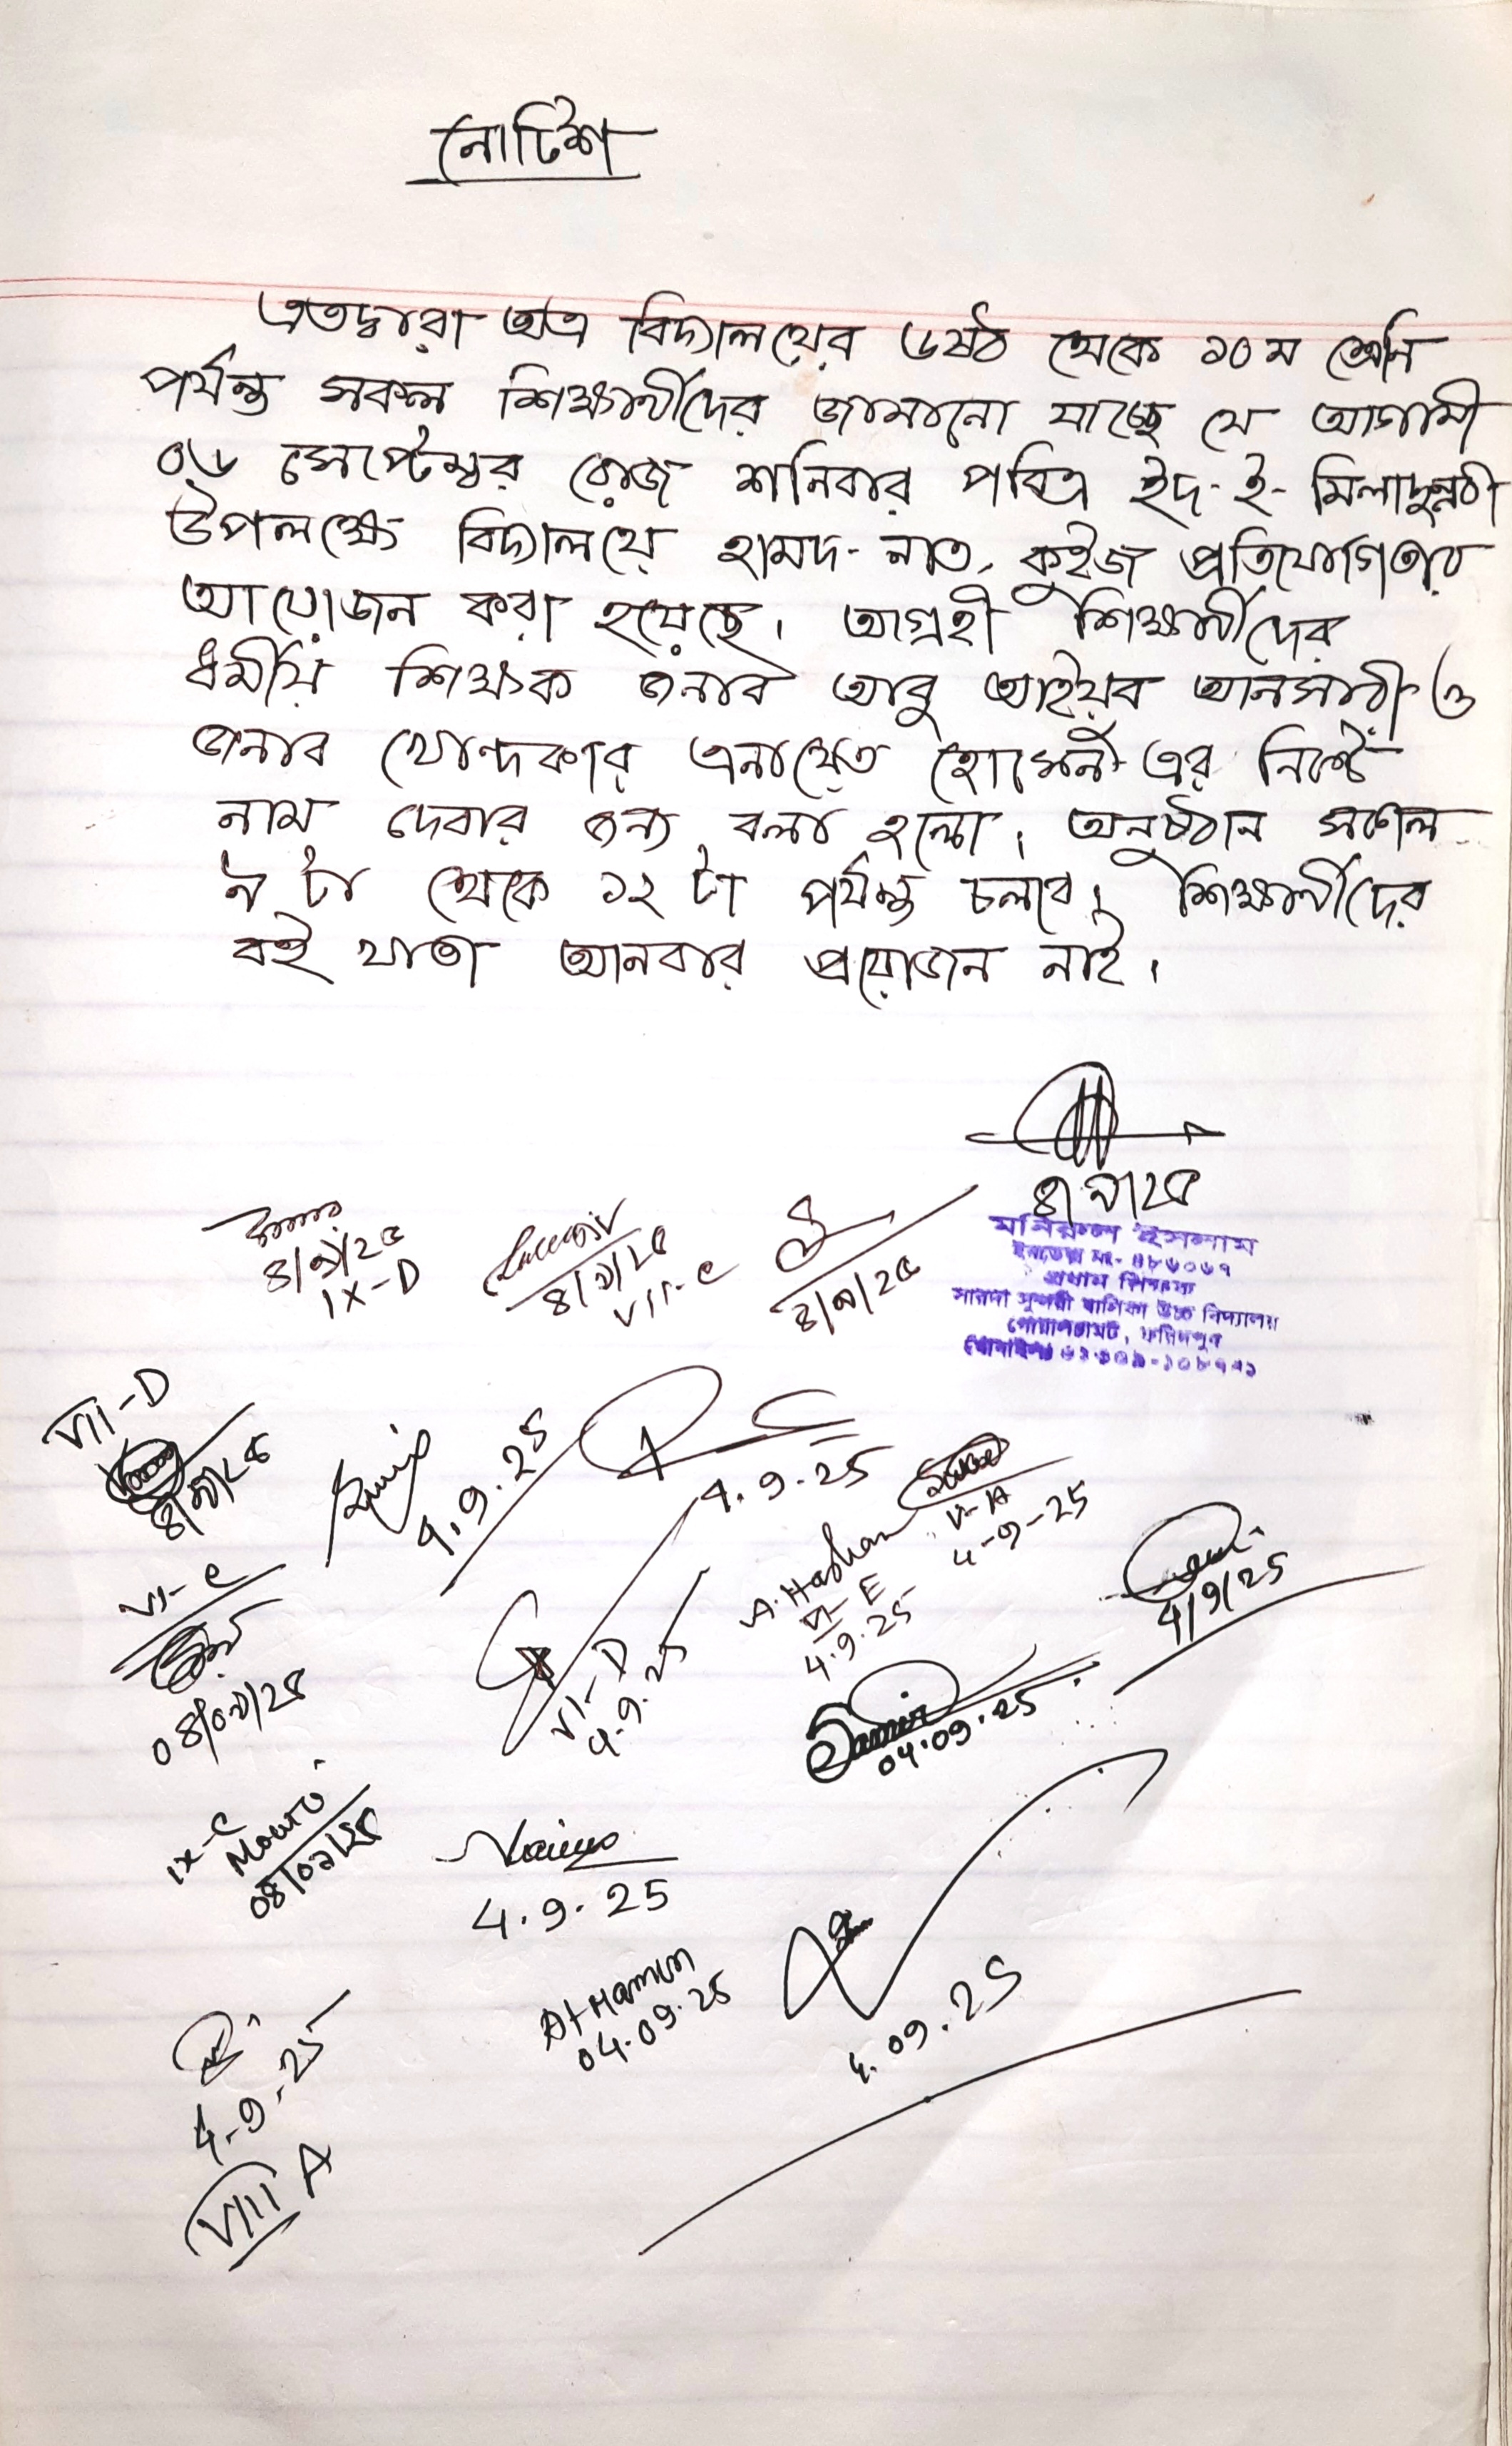 নোটিশ
এতদ্বারা অত্র বিদ্যালয়ের ৬ষ্ঠ থেকে ১০ম শ্রেনি
পর্যন্ত সকল শিক্ষার্থীদের জানানো যাচ্ছে যে আগামী
০৬ সেপ্টেম্বর রোজ শনিবার পবিত্র ইদ-ই-মিলাদুন্নবী
উপলক্ষে বিদ্যালয়ে হামদ-নাত, কুইজ প্রতিযোগিতার
আয়োজন করা হয়েছে। আগ্রহী শিক্ষার্থীদের
ধর্মীয় শিক্ষক জনাব আবু আইয়ুব আনসারী ও
জনাব খোন্দকার এনায়েত হোসেন এর নিকট
নাম দেবার জন্য বলা হলো। অনুষ্ঠান সকাল
৯ টা থেকে ১২ টা পর্যন্ত চলবে। শিক্ষার্থীদের
বই খাতা আনবার প্রয়োজন নাই।
৪/৯/২৫
মনিরুল ইসলাম
প্রধান শিক্ষক
সারদা সুন্দরী বালিকা উচ্চ বিদ্যালয়
গোয়ালচামট, ফরিদপুর
৪/৯/২৫
IX-D
৪/৯/২৫
VII-C
৪/৯/২৫
VII-D
৪/৯/২৫
4.9.25
4.9.25
V-A
4-9-25
A.Hashan
VI-E
4.9.25
4/9/25
VI-C
০৪/০৯/২৫
VI-D
4.9.25
04.09.25
IX-C
০৪/০৯/২৫
4.9.25
At Mamun
04.09.25
4.09.25
4-9-25
VIII A